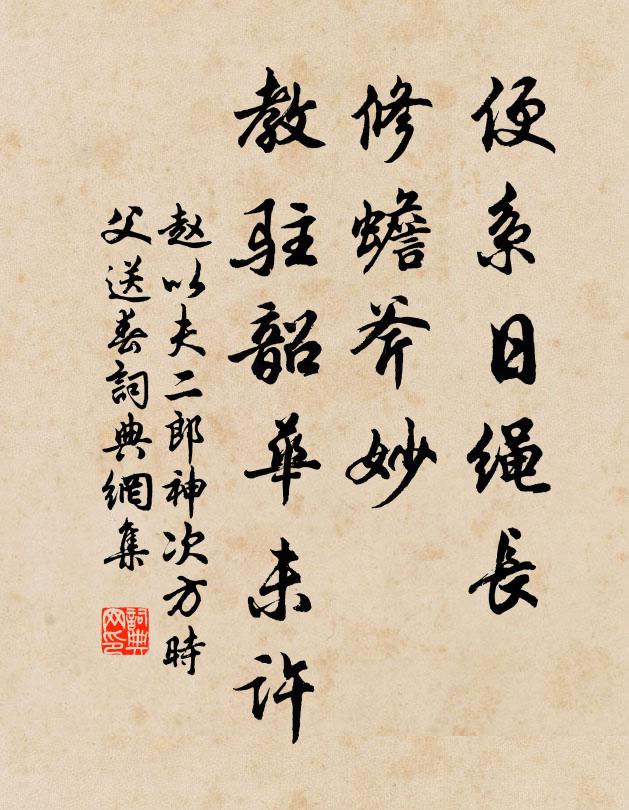 便系日绳長
修蟾斧妙
教駐韶華未許
赵以夫二郎神次方時
父送春詞典網集
詞典
网印